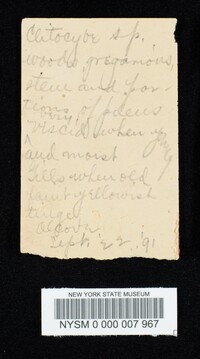 Clitocybe sp.
woods, gregarious,
stem and por-
tions of pileus
very
viscid when young
and moist
Gills when old
faint yellowish
tinge
above
Sept. 22. '91
NEW YORK STATE MUSEUM
NYSM 0 000 007 967